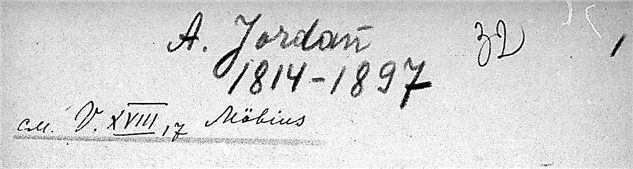 A. Jordan 32 1
1814-1897
см. V. XVIII, 17 Möbius